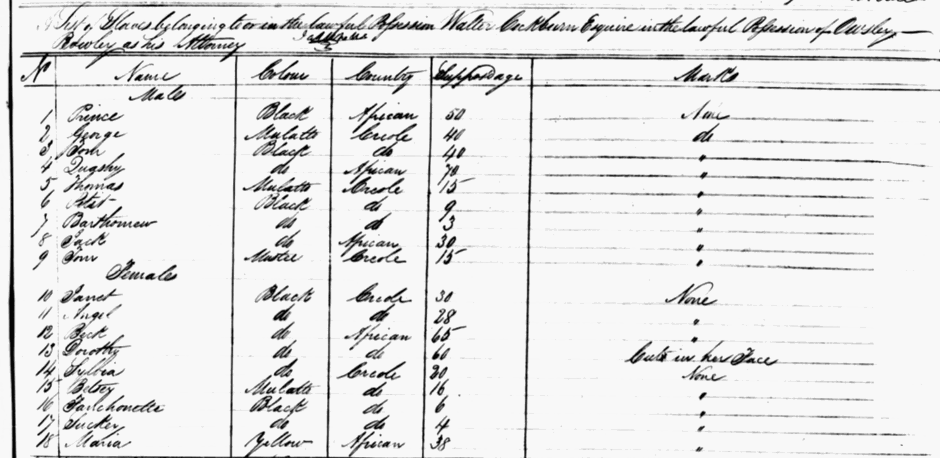 A List of Slaves belonging to or in the lawful Possession Walter Cockburn Esquire in the lawful Possession of Owsley
Rowley as his Attorney
No Name Colour Country Supposed age Marks
Males
1 Prince Black African 50 None
2 George Mulatto Creole 40 do
3 Tom Black do 40 "
4 Quashy do African 70 "
5 Thomas Mulatto Creole 15 "
6 Black do 9 "
7 Barthomew do do 3 "
8 Jack do African 30 "
9 Tom Mustee Creole 15 "
Females
10 Janet Black Creole 30 None
11 Angel do do 28 "
12 Beck do African 65 "
13 Dorothy do do 60 Cuts in her Face
14 Sylvia do Creole 30 None
15 Betsey Mulatto do 16 "
16 Fanchonette Black do 6 "
17 Sucker do do 4 "
18 Maria Yellow African 38 "